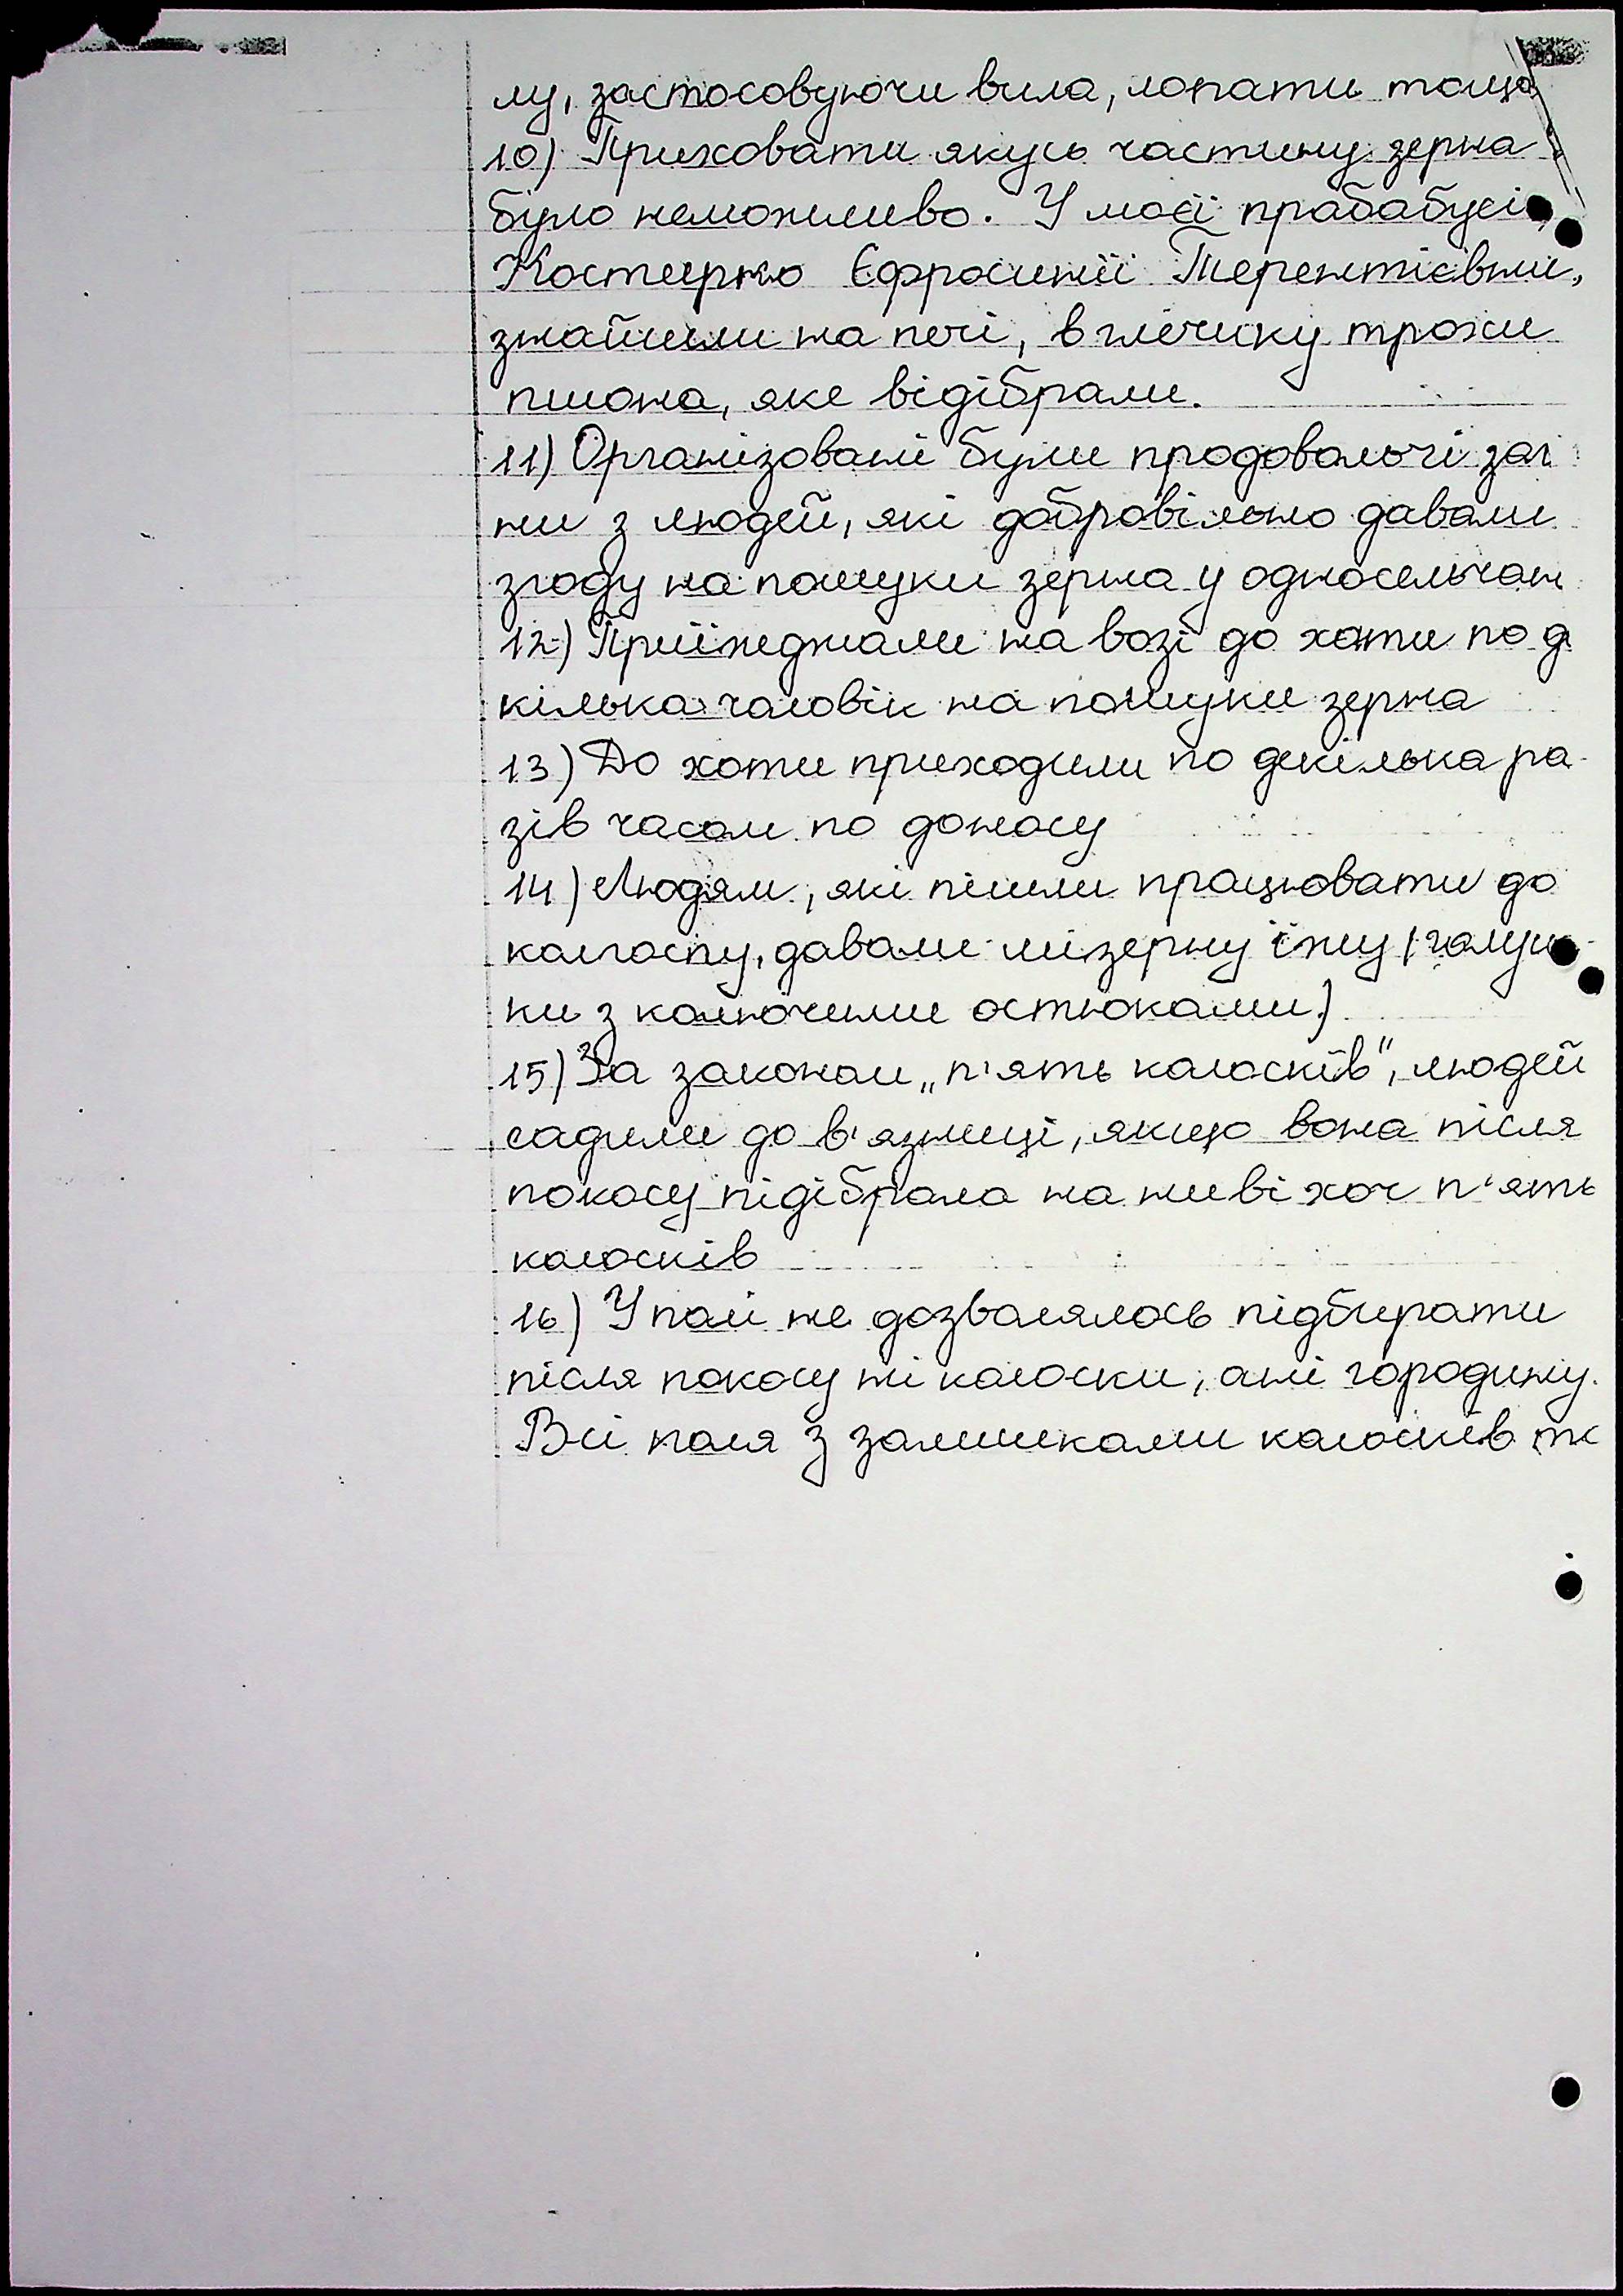 лу, застосовуючи вила, лопати тощо
10) Приховати якусь частину зерна
було неможливо. У моєї прабабусі,
Костирко Єфросинії Терентіївни,
знайшли на печі, в глечику трохи
пшона, яке відібрали.
11) Організовані були продовольчі заг
ни з людей, які добровільно давали
згоду на пошуки зерна у односельчан
12) Приїжджали на возі до хати по д
кілька чоловік на пошуки зерна
13) До хати приходили по декілька ра-
зів часом по доносу
14) Людям, які пішли працювати до
колгоспу, давали мізерну їжу (галуш-
ки з колючими остюками)
15) За законом „п'ять колосків", людей
садили до в'язниці, якщо вона після
покосу підібрала на ниві хоч п'ять
колосків
16) У полі не дозволялось підбирати
після покосу ні колоски, ані городину.
Всі поля з залишками колосків